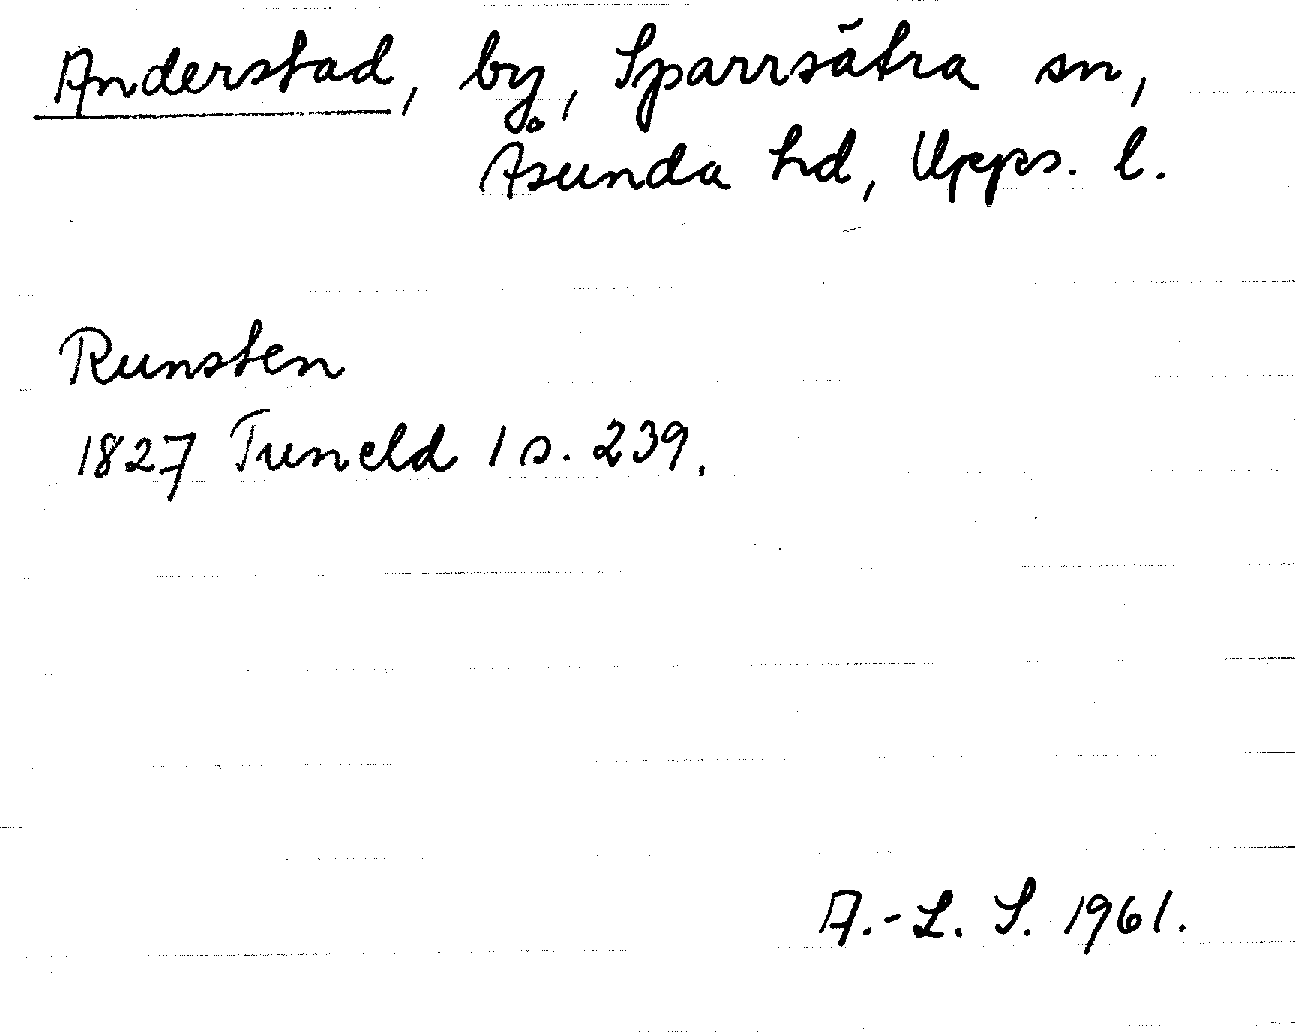 Anderstad, by, Sparrsätra sn,
Åsunda hd, Upps. l.
Runsten
1827 Tuneld 1 s. 239.
A.-L. S. 1961.